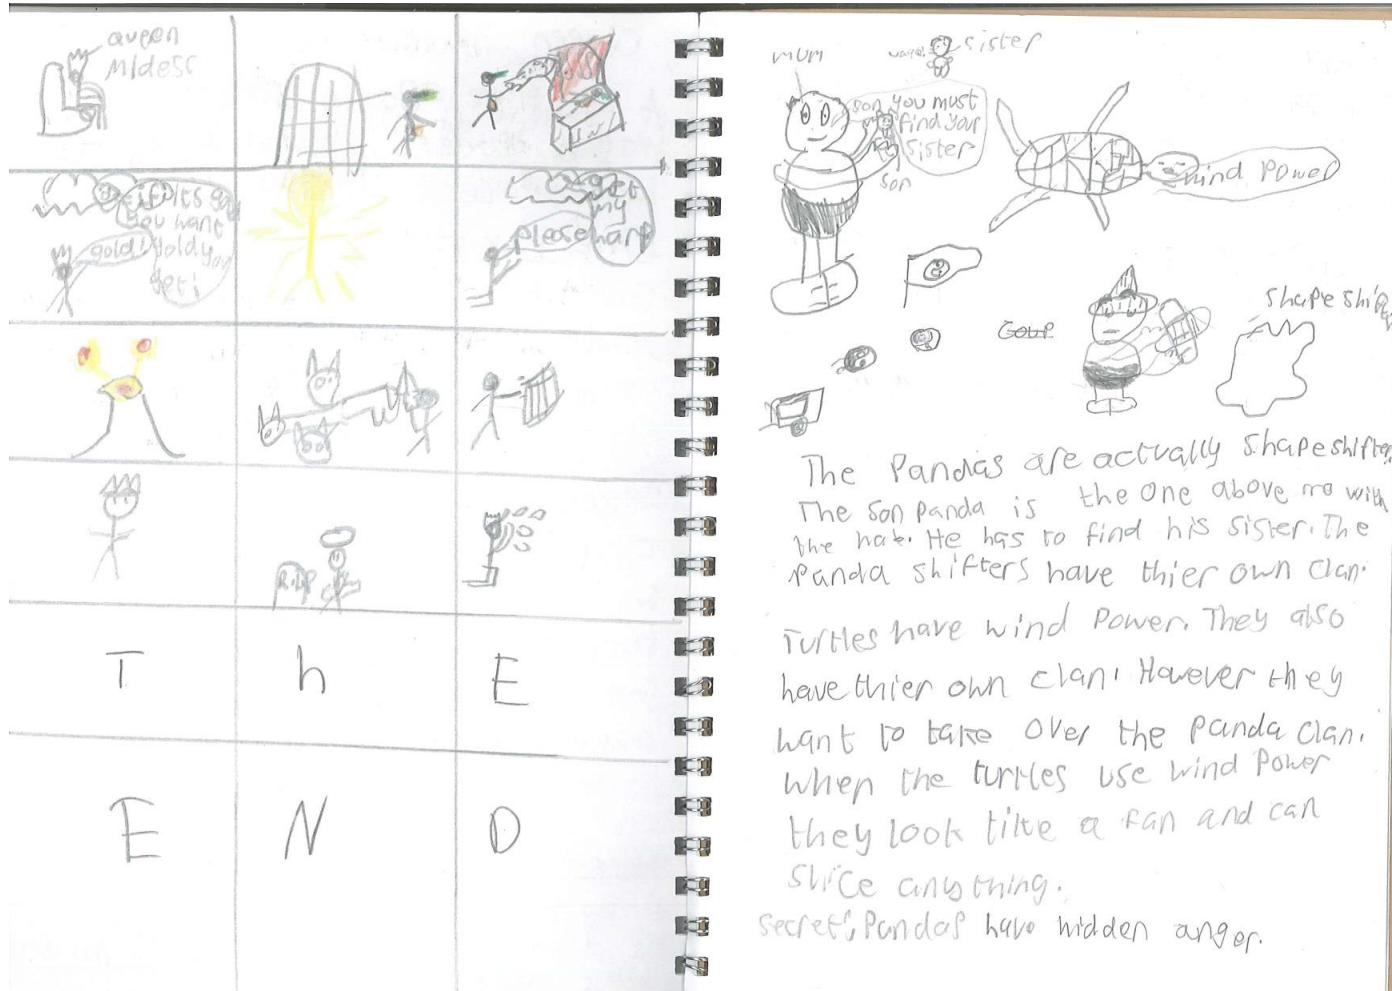 queen
Midesc
gold!
please
get
my
harp
R.I.P
T h E
E N D
mum
sister
son you must
find your
sister
son
wind Power
shape shifter
The Pandas are actually shapeshifters
The son panda is the one above me with
the hat. He has to find his sister. The
Panda shifters have thier own clan.
Turtles have wind Power. They also
have thier own clan. However they
want to take over the Panda clan.
When the turtles use wind Power
they look like a fan and can
slice anything.
secret: Pandas have hidden anger.